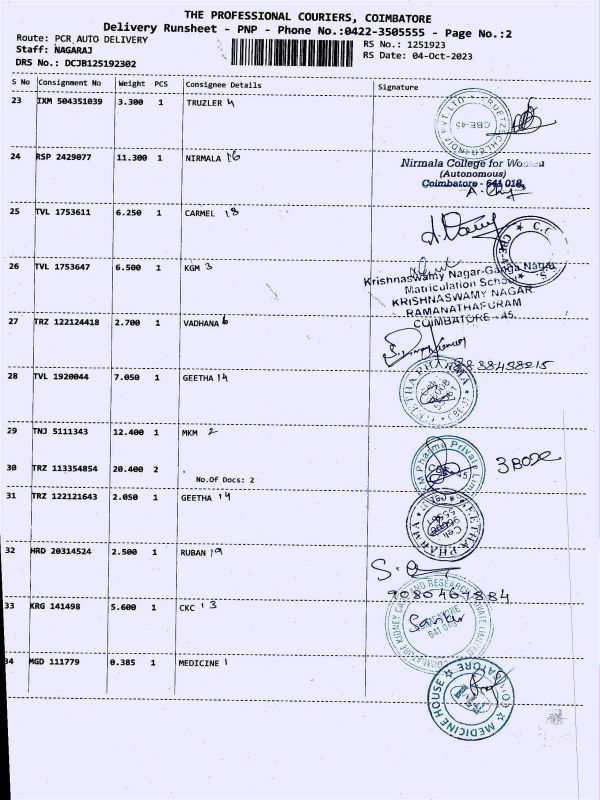 THE PROFESSIONAL COURIERS, COIMBATORE
Delivery Runsheet - PNP - Phone No.:0422-3505555 - Page No.:2
Route: PCR AUTO DELIVERY
Staff: NAGARAJ
DRS No.: DCJB125192302
RS No.: 1251923
RS Date: 04-Oct-2023
S No Consignment No Weight PCS Consignee Details Signature
23 IXM 504351039 3.300 1 TRUZLER 4
CBE-45
24 RSP 2429077 11.300 1 NIRMALA 16
Nirmala College for Women
(Autonomous)
Coimbatore - 641 018.
25 TVL 1753611 6.250 1 CARMEL 18
26 TVL 1753647 6.500 1 KGM 3
Krishnaswamy Nagar-Ganga Nagar
Matriculation School
KRISHNASWAMY NAGAR
RAMANATHAPURAM
COIMBATORE - 45.
27 TRZ 122124418 2.700 1 VADHANA 6
28 TVL 1920044 7.050 1 GEETHA 14
GEETHA PHARMA
29 TNJ 5111343 12.400 1 MKM 2
30 TRZ 113354854 20.400 2 .
No.Of Docs: 2
M Pharma Private
3 BOX
31 TRZ 122121643 2.050 1 GEETHA 14
GEETHA PHARMA
32 HRD 20314524 2.500 1 RUBAN 19
9080464884
33 KRG 141498 5.600 1 CKC 13
COIMBATORE KIDNEY CARE AND RESEARCH PRIVATE LIMITED
34 MGD 111779 0.385 1 MEDICINE 1
MEDICINE HOUSE